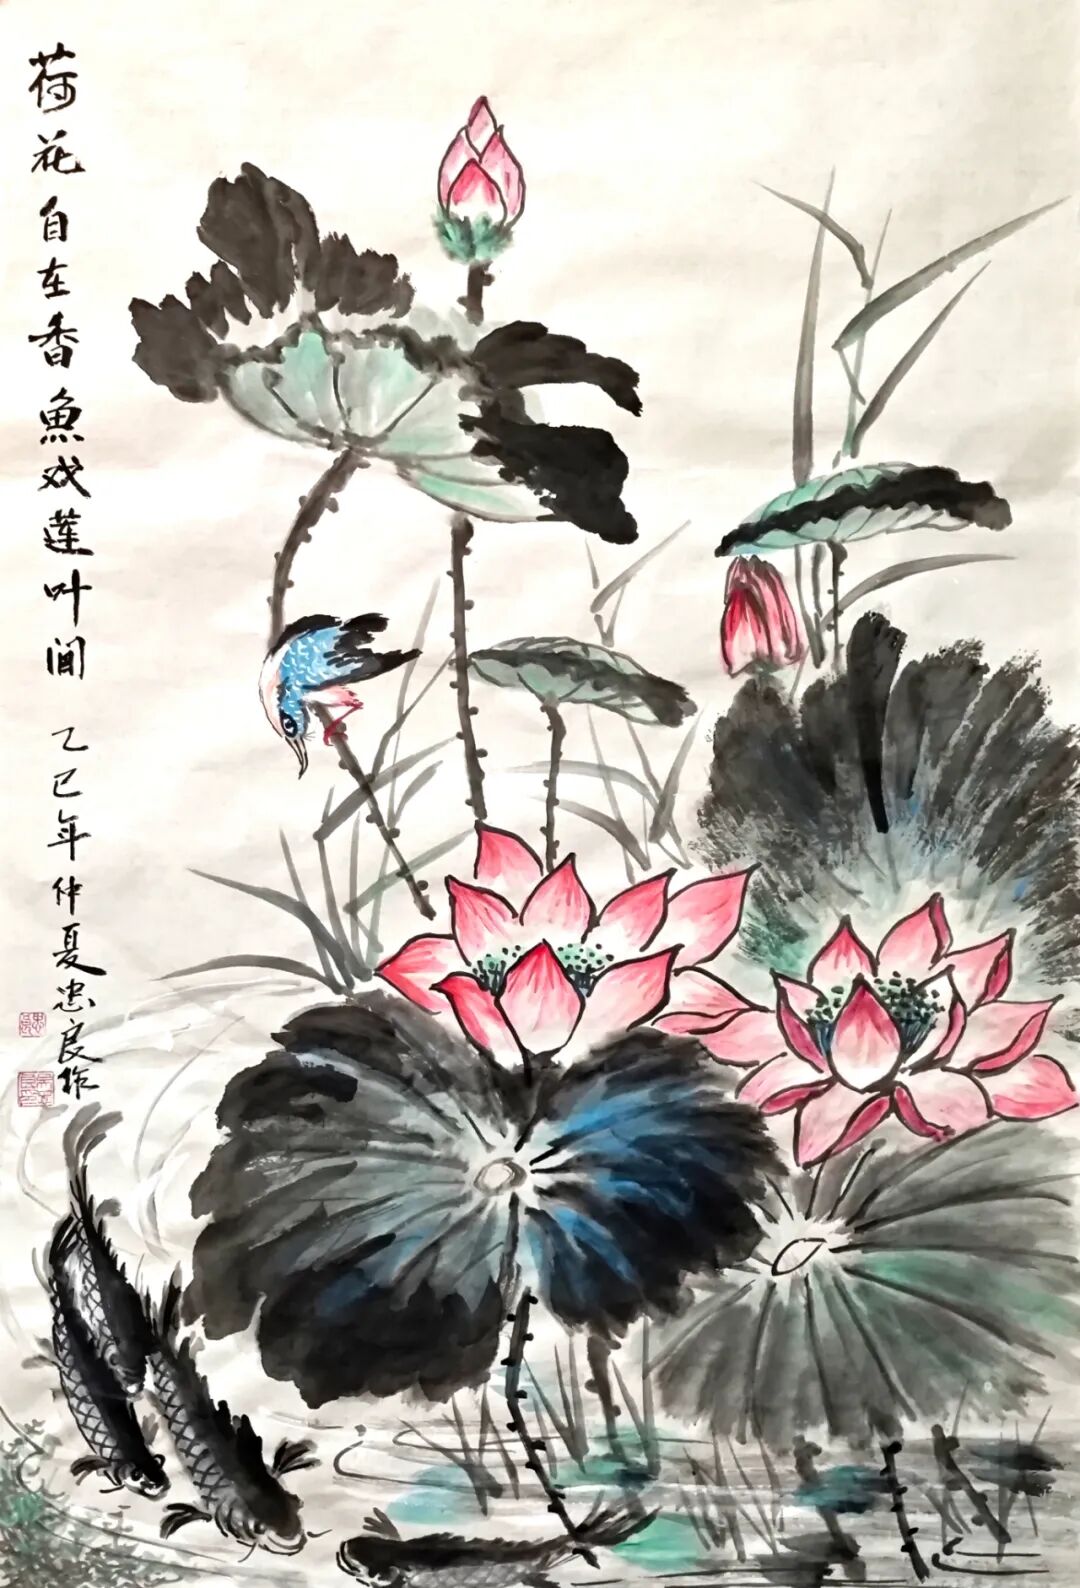 荷花自在香魚戏莲叶间 乙巳年仲夏忠良作